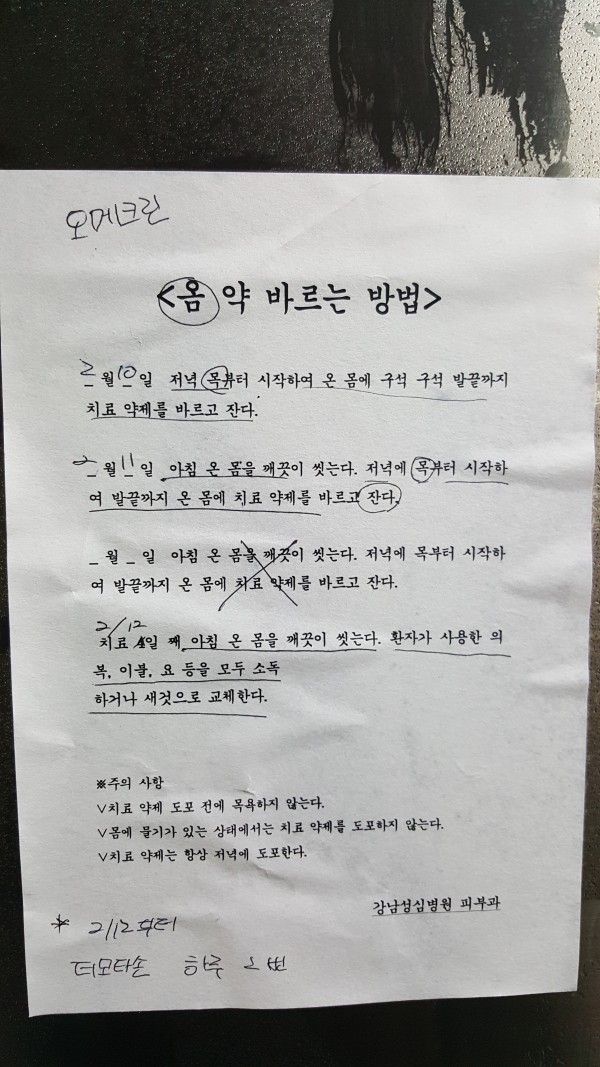 오메크린
<옴 약 바르는 방법>
2월 10일 저녁 목부터 시작하여 온 몸에 구석 구석 발끝까지
치료 약제를 바르고 잔다.
2월 11일 아침 온 몸을 깨끗이 씻는다. 저녁에 목부터 시작하
여 발끝까지 온 몸에 치료 약제를 바르고 잔다.
_월 _일 아침 온 몸을 깨끗이 씻는다. 저녁에 목부터 시작하
여 발끝까지 온 몸에 치료 약제를 바르고 잔다.
2/12
치료 4일 째 아침 온 몸을 깨끗이 씻는다. 환자가 사용한 의
복, 이불, 요 등을 모두 소독
하거나 새것으로 교체한다.
※주의 사항
∨치료 약제 도포 전에 목욕하지 않는다.
∨몸에 물기가 있는 상태에서는 치료 약제를 도포하지 않는다.
∨치료 약제는 항상 저녁에 도포한다.
강남성심병원 피부과
* 2/12부터
더모타손 하루 2번